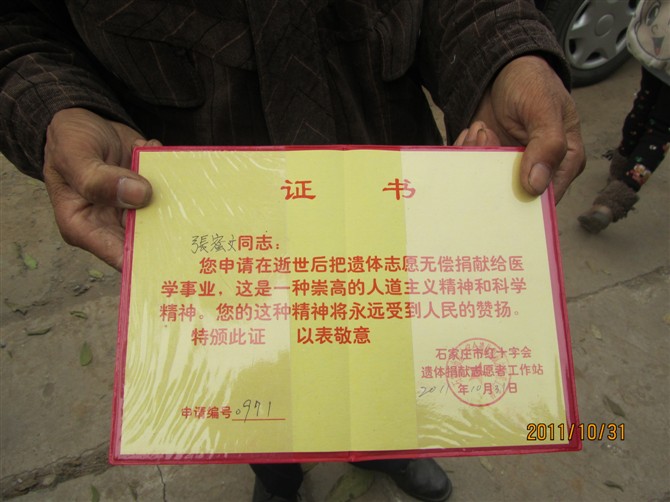 证 书
張蜜女同志：
您申请在逝世后把遗体志愿无偿捐献给医
学事业，这是一种崇高的人道主义精神和科学
精神。您的这种精神将永远受到人民的赞扬。
特颁此证 以表敬意
石家庄市红十字会
遗体捐献志愿者工作站
2011年10月31日
申请编号0971
2011/10/31